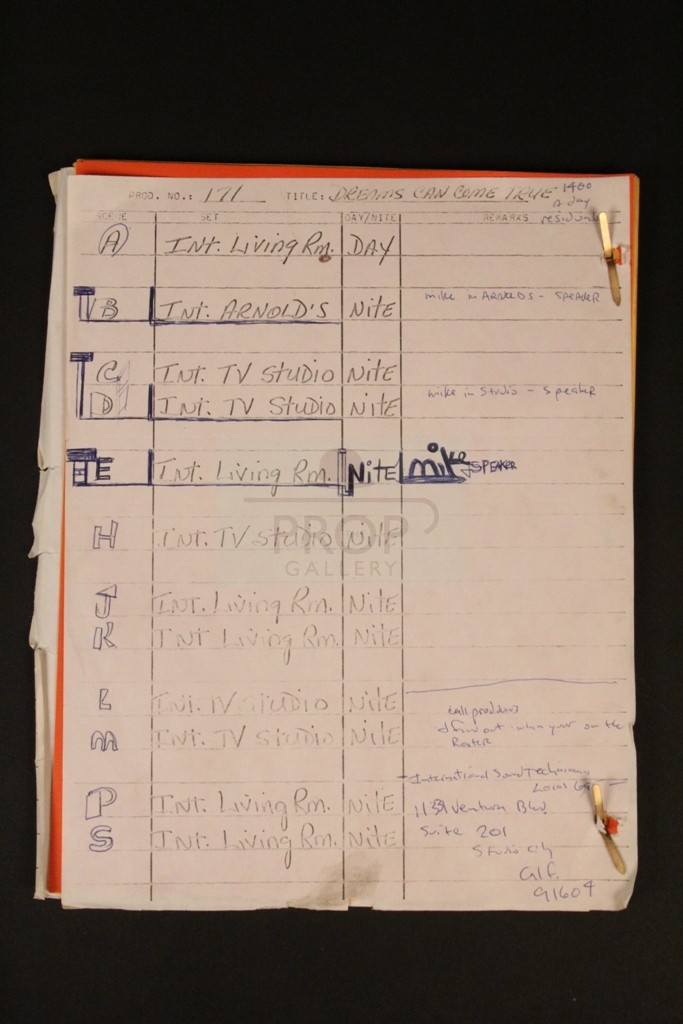 PROD. NO.: 171 TITLE: DREAMS CAN COME TRUE 1400
a day
SCENE SET DAY/NITE REMARKS
A Int. Living Rm. DAY
B Int. ARNOLD'S NitE mike in ARNOLDS - SPEAKER
C Int. TV StudiO NitE
D Int. TV StudiO NitE mike in Studio - Speaker
E Int. Living Rm. NitE mike SPEAKER
H Int. TV studio NitE
PROP
GALLERY
J Int. Living Rm. NitE
K Int Living Rm. NitE
L Int. TV studio NitE
call producers
M Int. TV Studio NitE
& find out when your on the
Roster
International Sound Technicians
Local
P Int. Living Rm. NitE
Ventura Blvd
S Int. Living Rm. NitE
Suite 201
Studio City
Calf.
91604